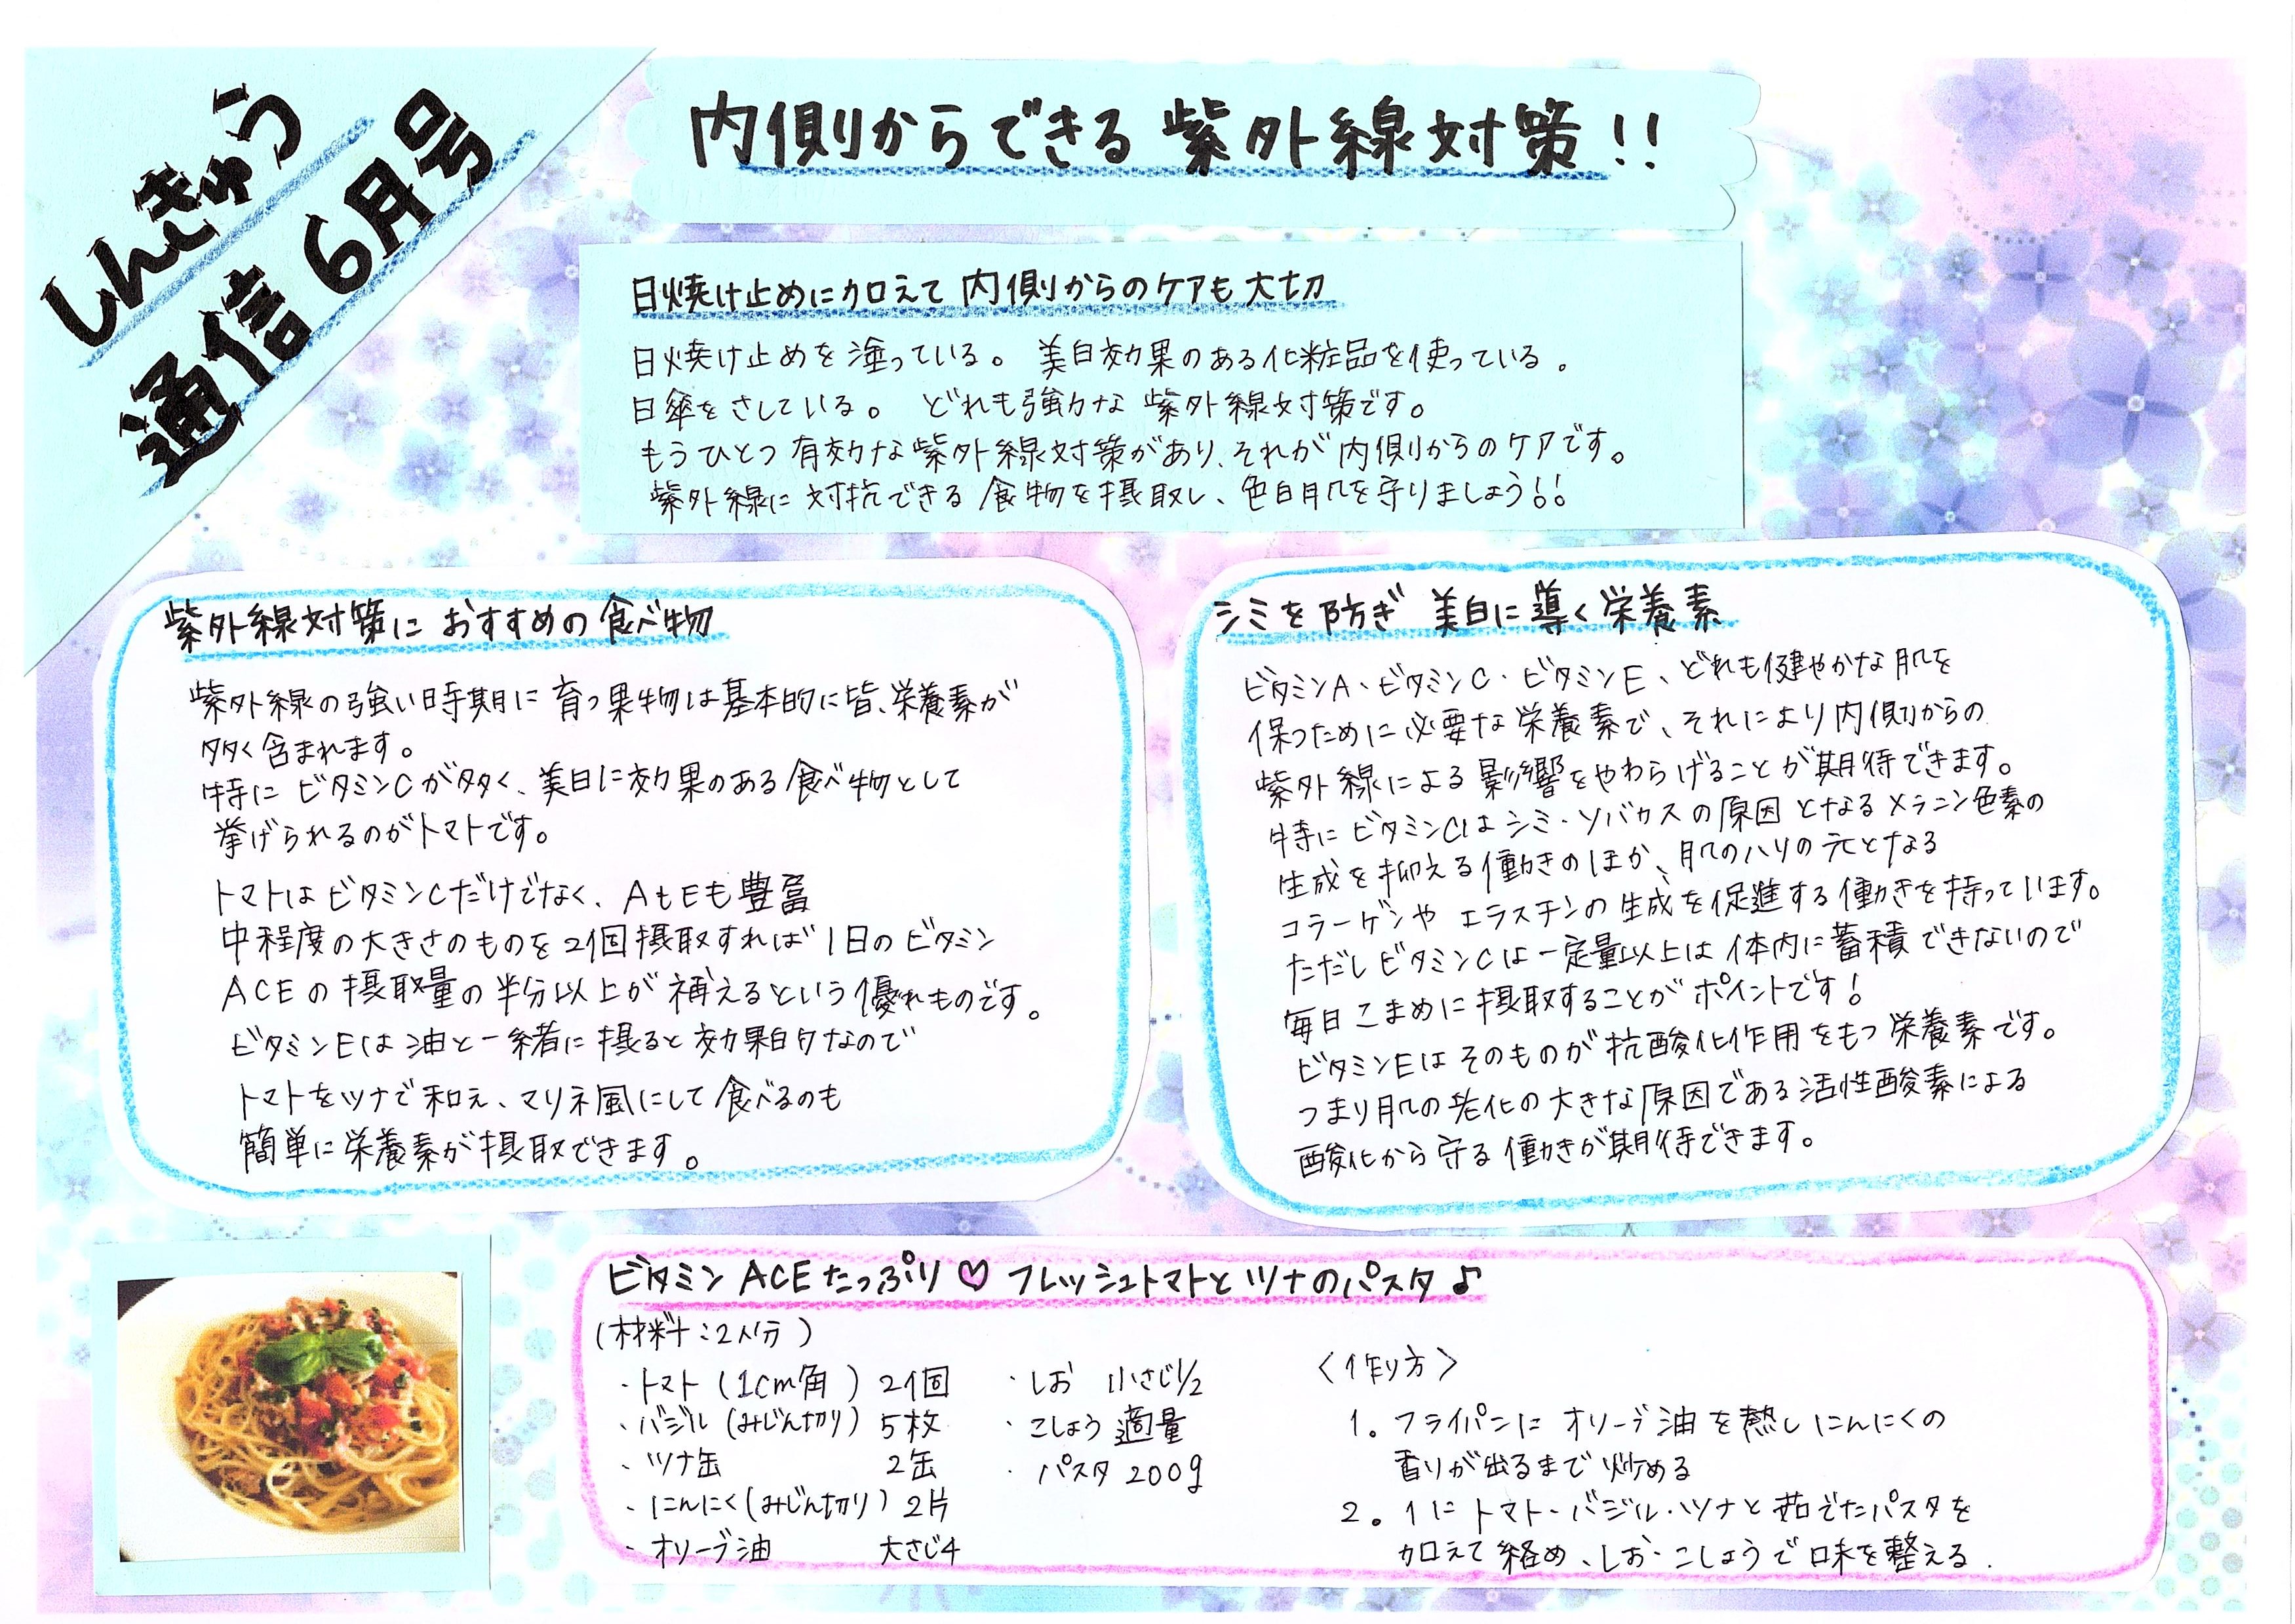 しんきゅう
通信6月号
内側からできる紫外線対策!!
日焼け止めに加えて内側からのケアも大切
日焼け止めを塗っている。美白効果のある化粧品を使っている。
日傘をさしている。どれも強力な紫外線対策です。
もうひとつ有効な紫外線対策があり、それが内側からのケアです。
紫外線に対抗できる食物を摂取し、色白肌を守りましょう!!
紫外線対策におすすめの食べ物
紫外線の強い時期に育つ果物は基本的に皆、栄養素が
多く含まれます。
特にビタミンCが多く、美白に効果のある食べ物として
挙げられるのがトマトです。
トマトはビタミンCだけでなく、AもEも豊富
中程度の大きさのものを2個摂取すれば1日のビタミン
ACEの摂取量の半分以上が補えるという優れものです。
ビタミンEは油と一緒に摂ると効果的なので
トマトをツナで和え、マリネ風にして食べるのも
簡単に栄養素が摂取できます。
シミを防ぎ美白に導く栄養素
ビタミンA・ビタミンC・ビタミンE、どれも健やかな肌を
保つために必要な栄養素で、それにより内側からの
紫外線による影響をやわらげることが期待できます。
特にビタミンCはシミ・ソバカスの原因となるメラニン色素の
生成を抑える働きのほか、肌のハリの元となる
コラーゲンやエラスチンの生成を促進する働きを持っています。
ただしビタミンCは一定量以上は体内に蓄積できないので
毎日こまめに摂取することがポイントです!
ビタミンEはそのものが抗酸化作用をもつ栄養素です。
つまり肌の老化の大きな原因である活性酸素による
酸化から守る働きが期待できます。
ビタミンACEたっぷり♡フレッシュトマトとツナのパスタ♪
(材料:2人分)
・トマト(1cm角) 2個
・バジル(みじん切り) 5枚
・ツナ缶 2缶
・にんにく(みじん切り) 2片
・オリーブ油 大さじ4
・しお 小さじ1/2
・こしょう 適量
・パスタ 200g
〈作り方〉
1。フライパンにオリーブ油を熱しにんにくの
香りが出るまで炒める
2。1にトマト・バジル・ツナと茹でたパスタを
加えて絡め、しお・こしょうで味を整える.